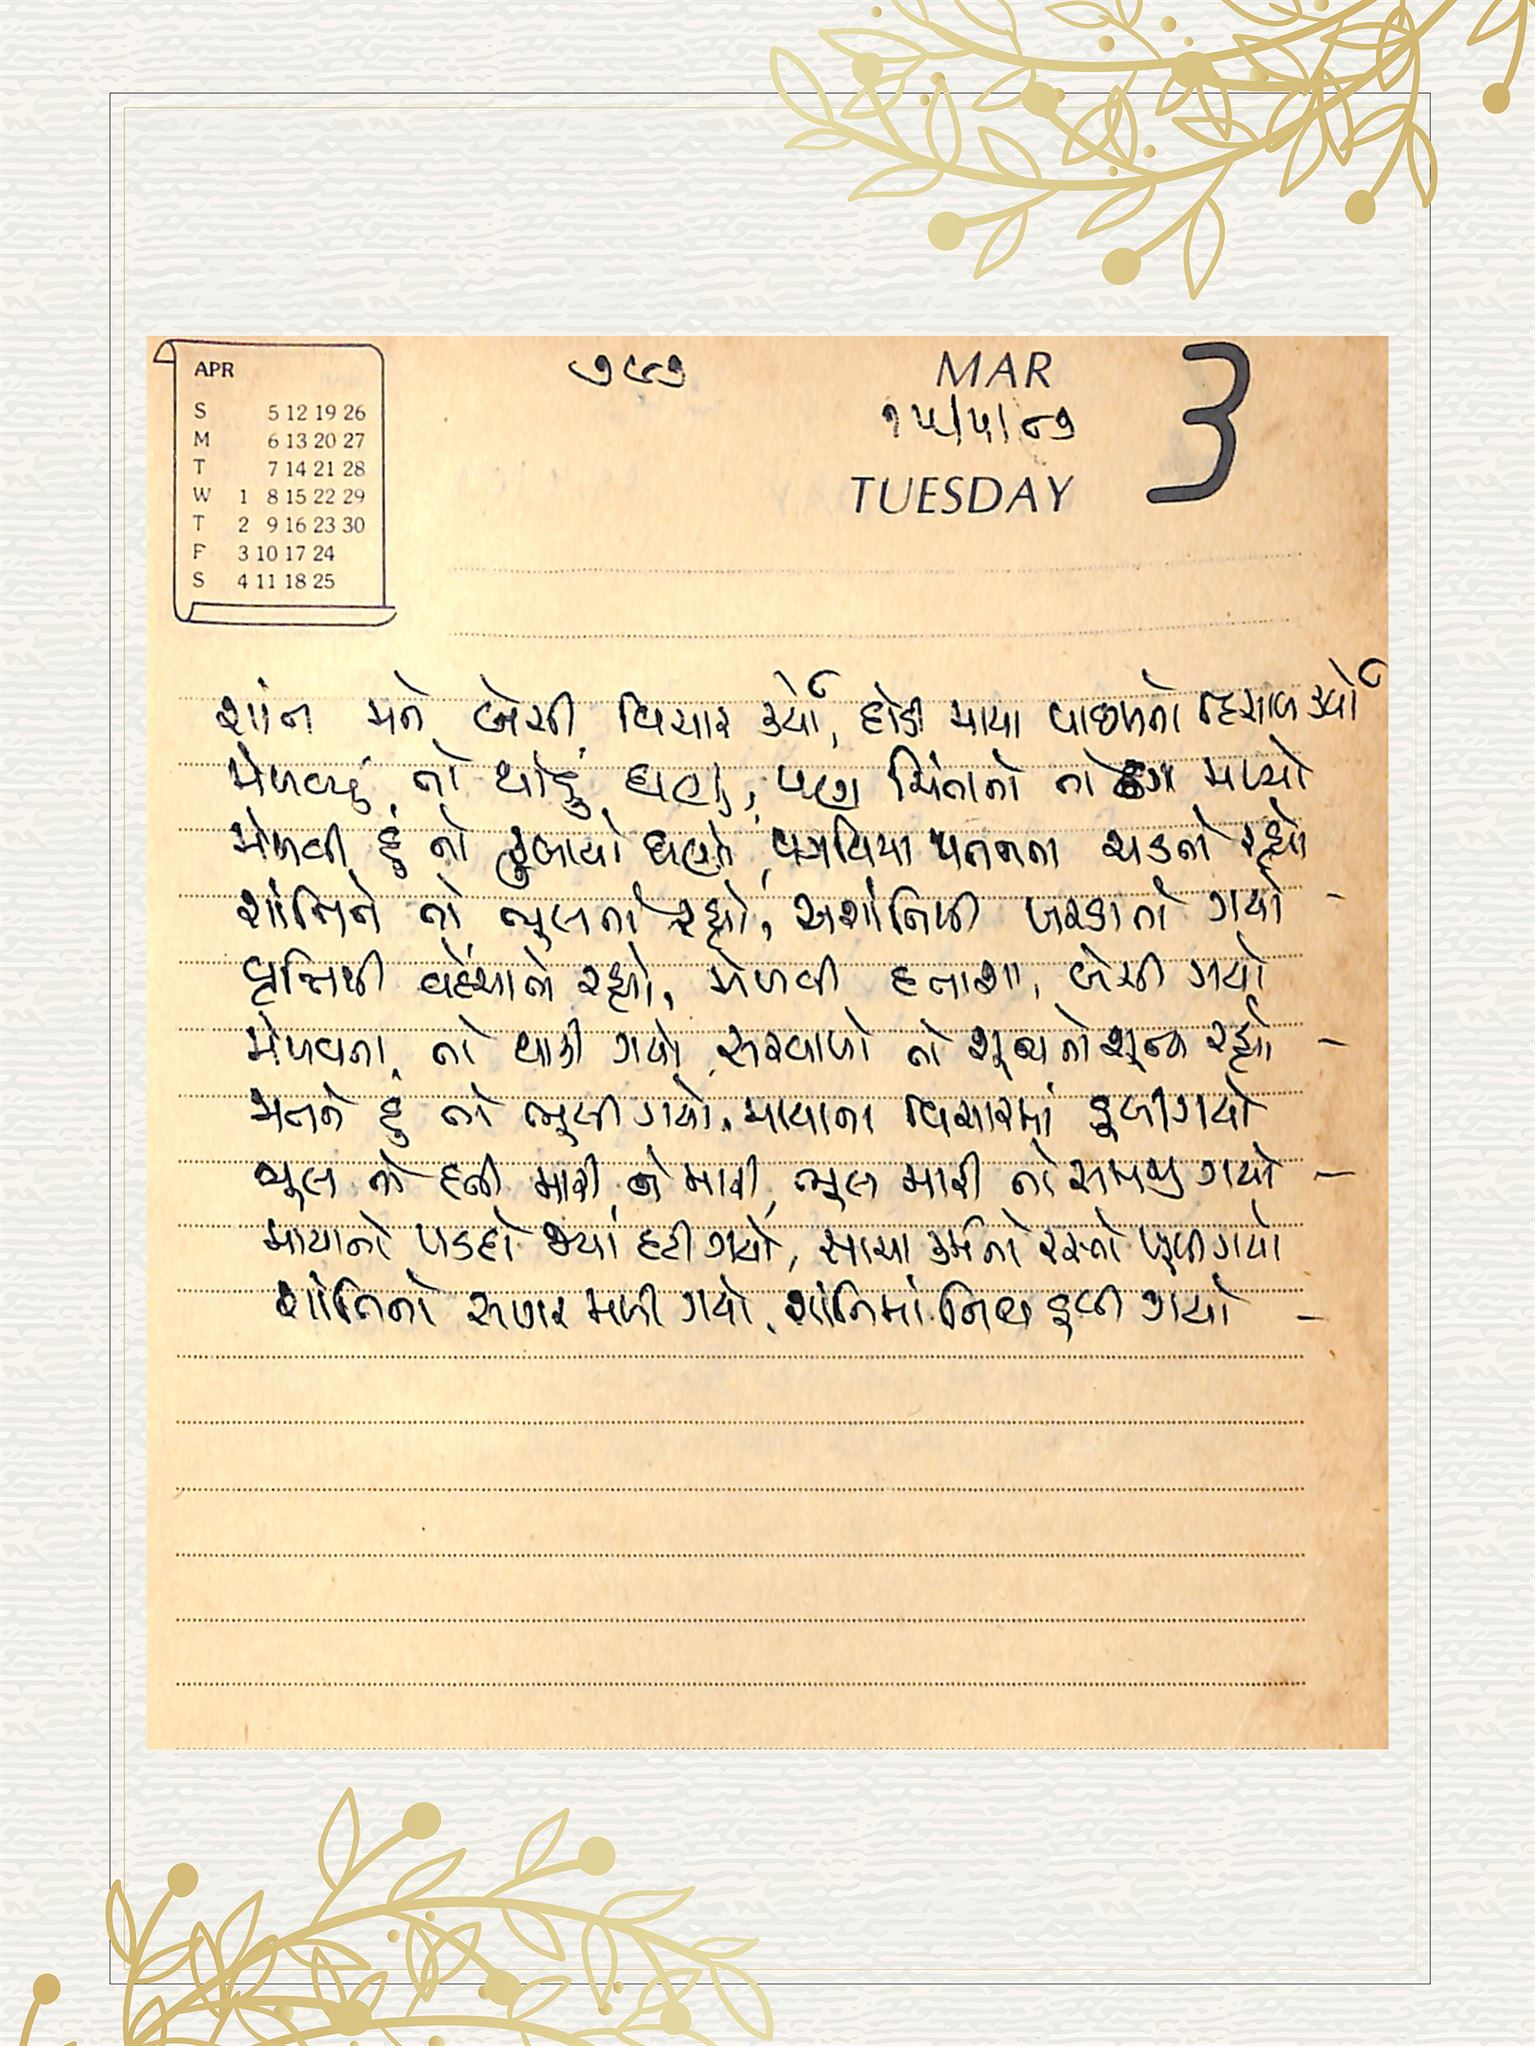 APR
S 5 12 19 26
M 6 13 20 27
T 7 14 21 28
W 1 8 15 22 29
T 2 9 16 23 30
F 3 10 17 24
S 4 11 18 25
૭૯૭
MAR 3
૧૫/૫/૮૭
TUESDAY
શાંત મને બેસી વિચાર કર્યો, છોડી માયા પાછળનો હિસાબ કર્યો
મેળવ્યું તો થોડું ઘણું, પણ ચિંતાનો તો મળ્યો
મેળવી હું તો ઘણો, પગથિયા પતનના ચડતો રહ્યો
શાંતિને તો ભૂલતો રહ્યો, અશાંતિથી ખરડાતો ગયો -
વૃત્તિથી વહેંચાતો રહ્યો, મેળવી હતાશા, બેસી ગયો
મેળવતા તો થાકી ગયો, સરવાળો તો શૂન્ય નો શૂન્ય રહ્યો -
મનને હું તો ભૂલી ગયો, માયાના વિચારમાં ડૂબી ગયો
ભૂલ તો હતી મારી ને મારી, ભૂલ મારી તો સમજી ગયો -
માયાનો પડદો જ્યાં હટી ગયો, સાચા કર્મનો રસ્તો ખૂલી ગયો
શાંતિનો સાગર મળી ગયો, શાંતિમાં નિત્ય ડૂબી ગયો -